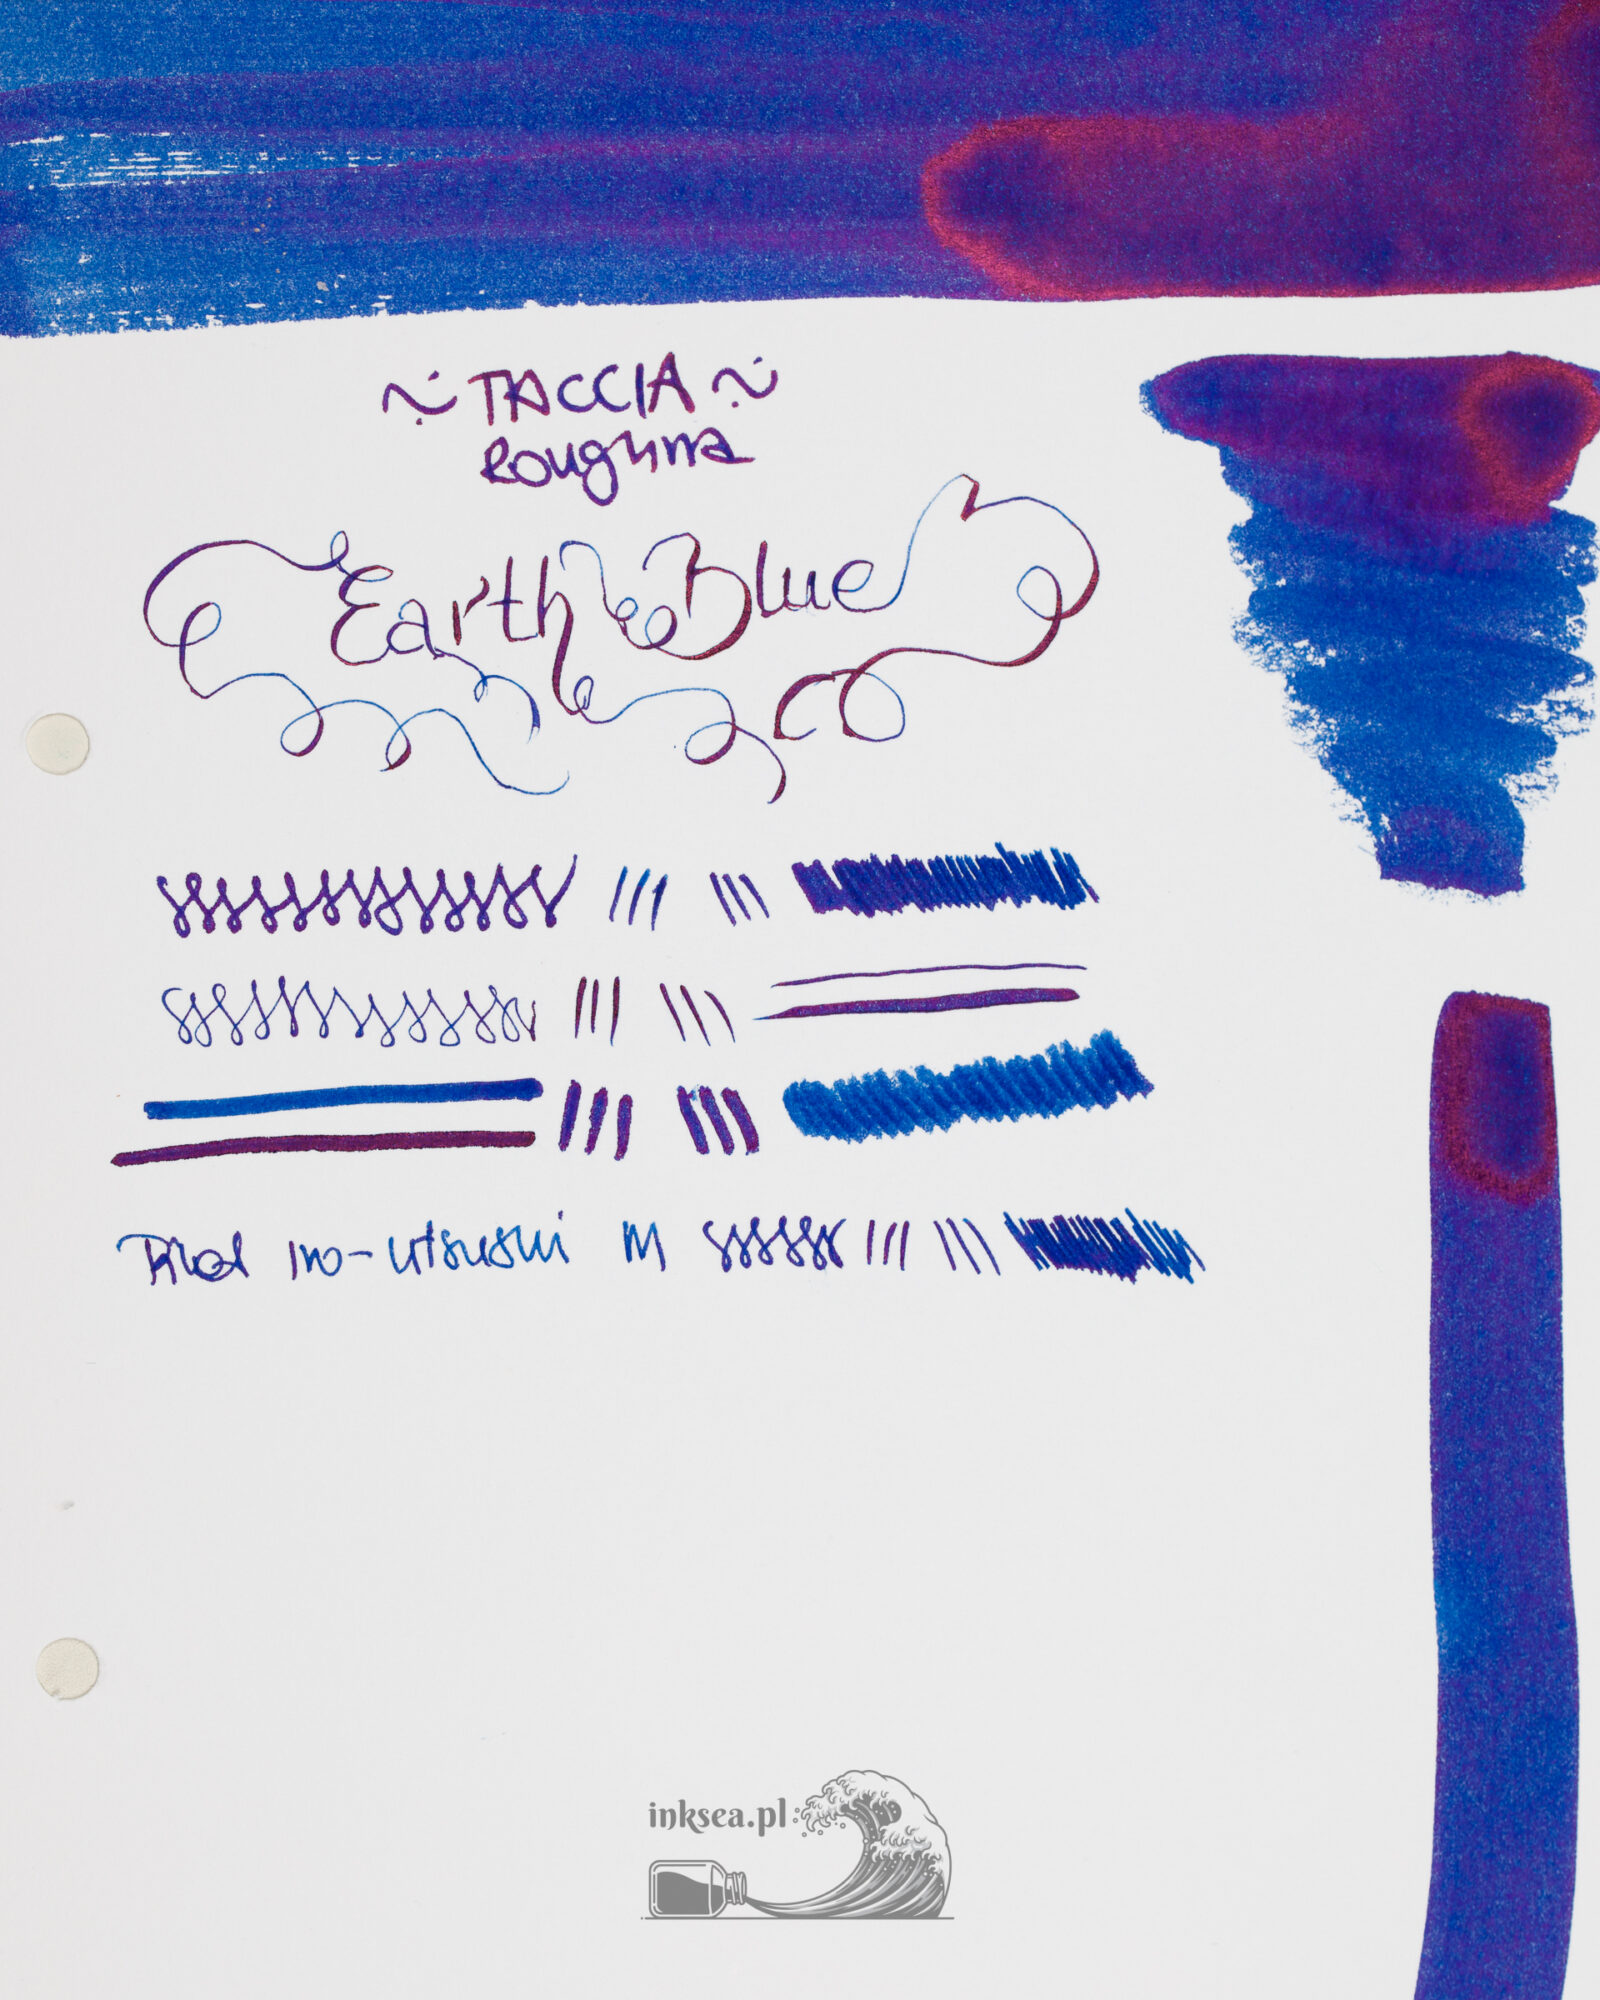 ~ TACCIA ~
Earth Blue
Pilot iro-utsushi M
inksea.pl